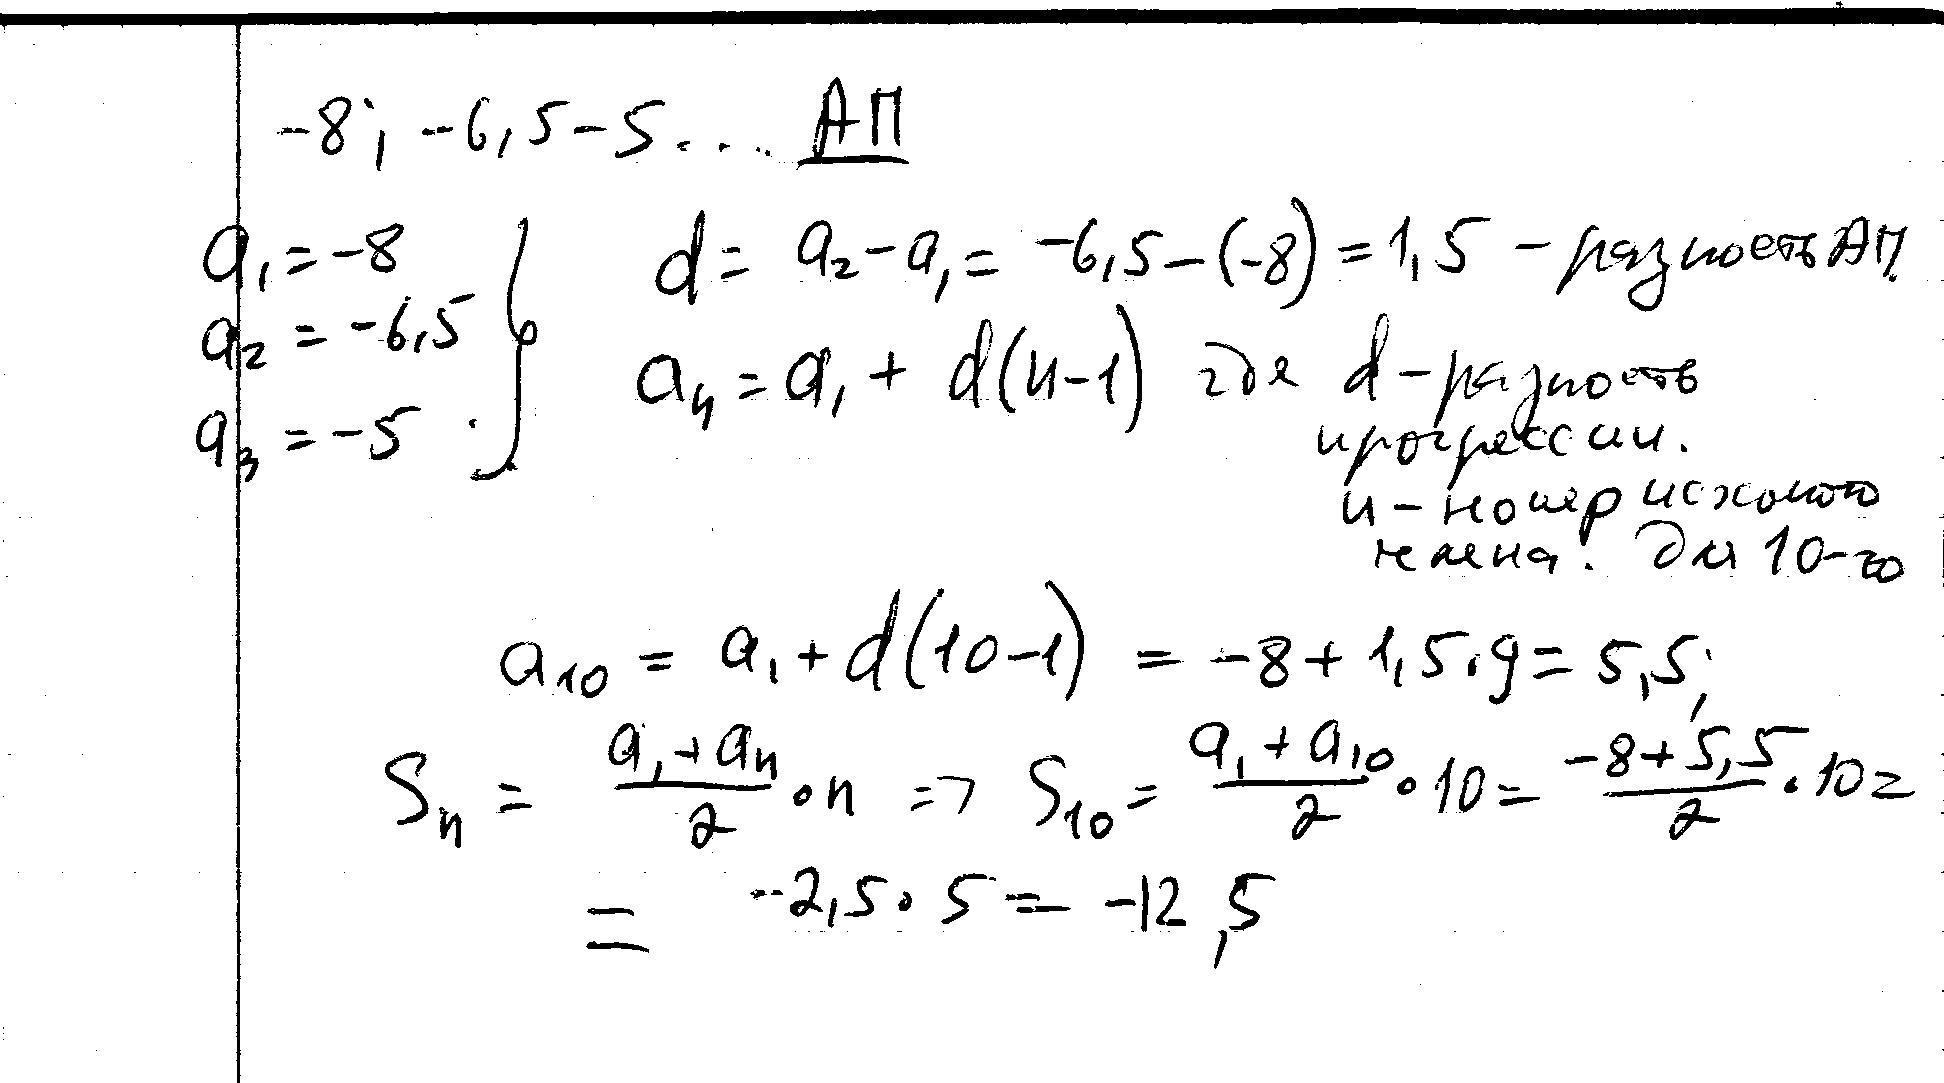 -8; -6,5 -5.... АП
a₁ = -8
a₂ = -6,5
a₃ = -5
d = a₂ - a₁ = -6,5 - (-8) = 1,5 - разность АП.
aₙ = a₁ + d(n-1) где d - разность
прогрессии.
n - номер искомого
члена. Для 10-го
a₁₀ = a₁ + d(10-1) = -8 + 1,5 · 9 = 5,5;
Sₙ = (a₁ + aₙ)/2 · n => S₁₀ = (a₁ + a₁₀)/2 · 10 = (-8 + 5,5)/2 · 10 =
= -2,5 · 5 = -12,5